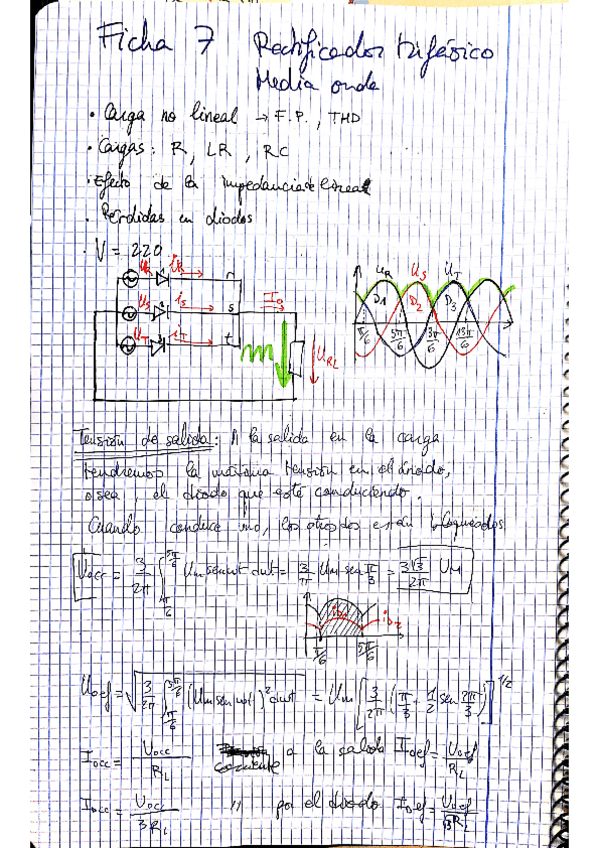 Ficha 7 Rectificador trifásico
Media onda
• Carga no lineal → F.P., THD
• Cargas: R, LR, RC
• Efecto de la impedancia de linea
• Pérdidas en diodos
• V = 220
u_R i_R r
u_S i_S s I_o
u_T i_T t
U_RL
u_R u_S u_T
D1 D2 D3
π/6 5π/6 9π/6 13π/6
Tensión de salida: A la salida en la carga
tendremos la máxima tensión en el ánodo,
o sea, el diodo que esté conduciendo.
Cuando conduce uno, los otros dos están bloqueados
U_occ = 3/2π ∫_{π/6}^{5π/6} U_m sen wt dwt = 3/π U_m sen π/3 = 3√3/2π U_M
π/6 5π/6
U_oef = √(3/2π ∫_{π/6}^{5π/6} (U_m sen wt)² dwt) = U_m [3/2π (π/3 - 1/2 sen 2π/3)]^{1/2}
I_occ = U_occ/R_L corriente a la salida I_oef = U_oef/R_L
I_Dcc = U_occ/3R_L " por el diodo I_Def = U_oef/√3R_L